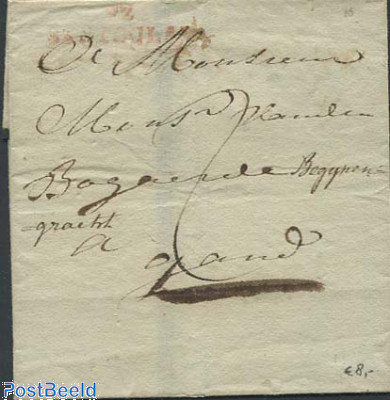 92
A Monsieur
Monsr vanden
Bogaerde Begynen
gracht
a
gand
€8,-
PostBeeld